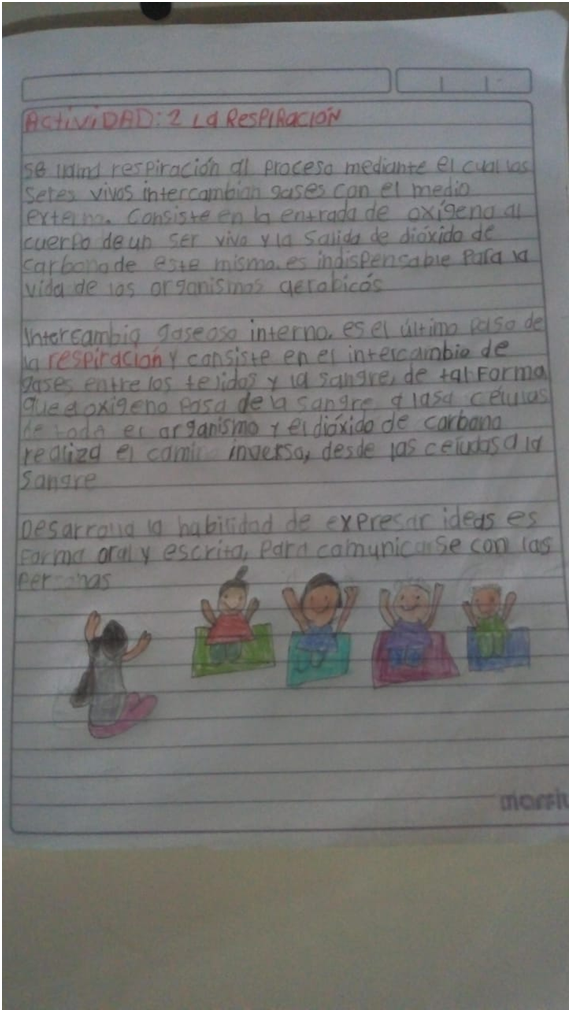 ActiviDAD: 2 La RESPIRACIÓN
se llama respiración al proceso mediante el cual los
seres vivos intercambian gases con el medio
externo. Consiste en la entrada de oxígeno al
cuerpo de un ser vivo y la salida de dióxido de
carbono de este mismo. es indispensable para la
vida de los organismos aerobicós
Intercambio gaseoso interno. es el último paso de
la respiración y consiste en el intercambio de
gases entre los tejidos y la sangre, de tal Forma
que el oxígeno pasa de la sangre a lasa células
de todo el organismo y el dióxido de carbono
realiza el camino inverso, desde las celudas a la
Sangre
Desarrolla la habilidad de expresar ideas es
Forma oral y escrita, para comunicarse con las
Personas